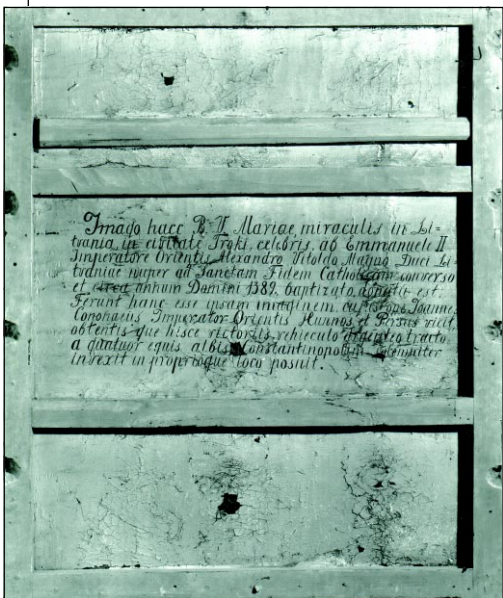 Imago haec B. V. Mariae, miraculis in Li-
tvania in civitate Troki, celebris, ab Emmanuele II
Imperatore Orientis Alexandro Vitoldo Magno Duci Li-
tvaniae nuper ad Sanctam Fidem Catholicam converso
et circa annum Domini 1389. baptizato est.
Ferunt hanc esse ipsam imaginem, Joannes
Imperator Orientis Hunnos et Persas vicit,
obtentis que hisce victoriis, vehiculo tracto
a quatuor equis albis Constantinopolim solemniter
invexit in proprioque loco posuit.